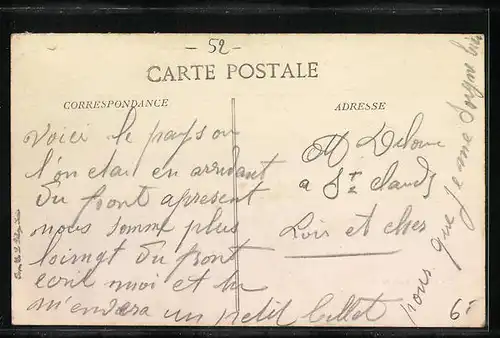 - 52 -
CARTE POSTALE
CORRESPONDANCE
ADRESSE
voici le pays ou
l'on etai en arrivant
du front apresent
nous somme plus
loingt du front
ecrit moi et tu
m'envera un petit billet
M Deloue
a St Claude
Loir et cher
pour que je me soigne bien
6f